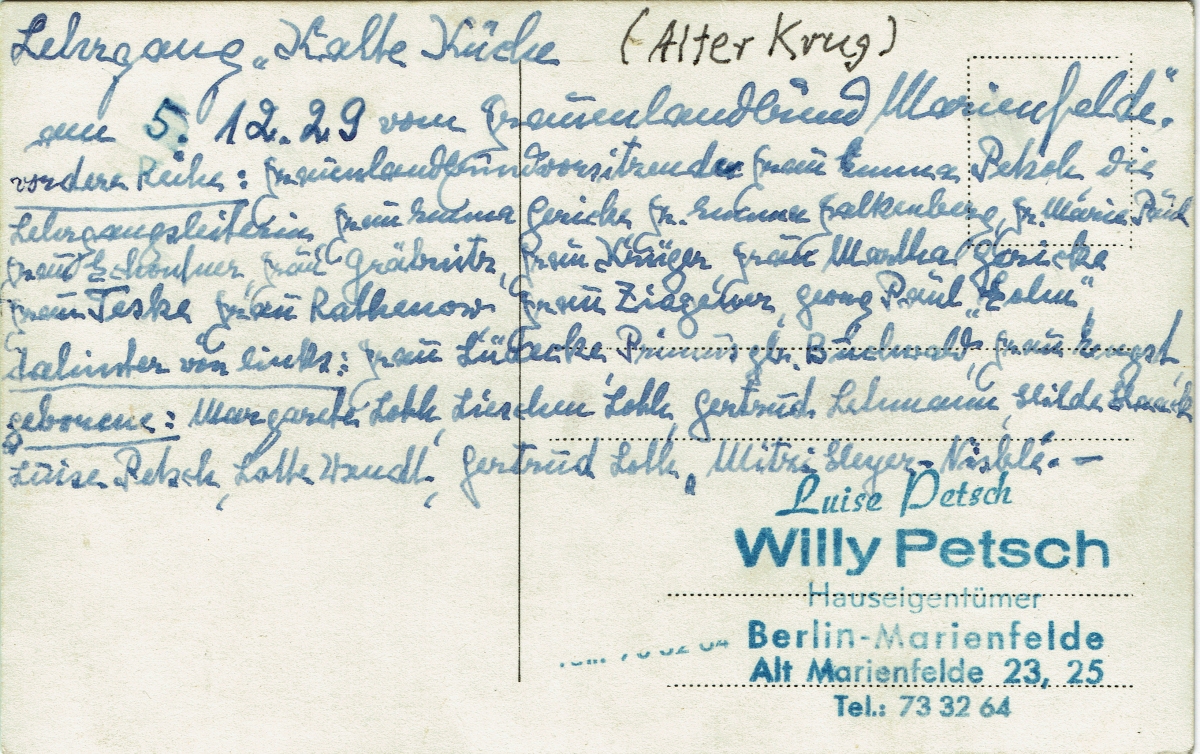 Lehrgang „Kalte Küche (Alter Krug)
am 5. 12.29 vom Frauenlandbund Marienfelde“.
vordere Reihe: Frauenlandbundvorsitzende Frau Emma Petsch die
Lehrgangsleiterin Frau Emma Gericke Fr. Emma Falkenberg, Fr. Maria Paul
Frau Gräbnitz, Frau Krüger, Frau Martha Gericke
Frau Teske Frau Rathenow Frau Georg Paul
dahinter von links: Frau Lübecke, Primus gb. Buchwald, Frau
geborene: Margarete Loth, Lieschen Loth, Gertrud Lehmann, Hilde
Luise Petsch, Lotte Wendt, Gertrud Loth, Mitzi Meyer-Nisblé. —
Luise Petsch
Willy Petsch
Hauseigentümer
Berlin-Marienfelde
Alt Marienfelde 23, 25
Tel.: 73 32 64